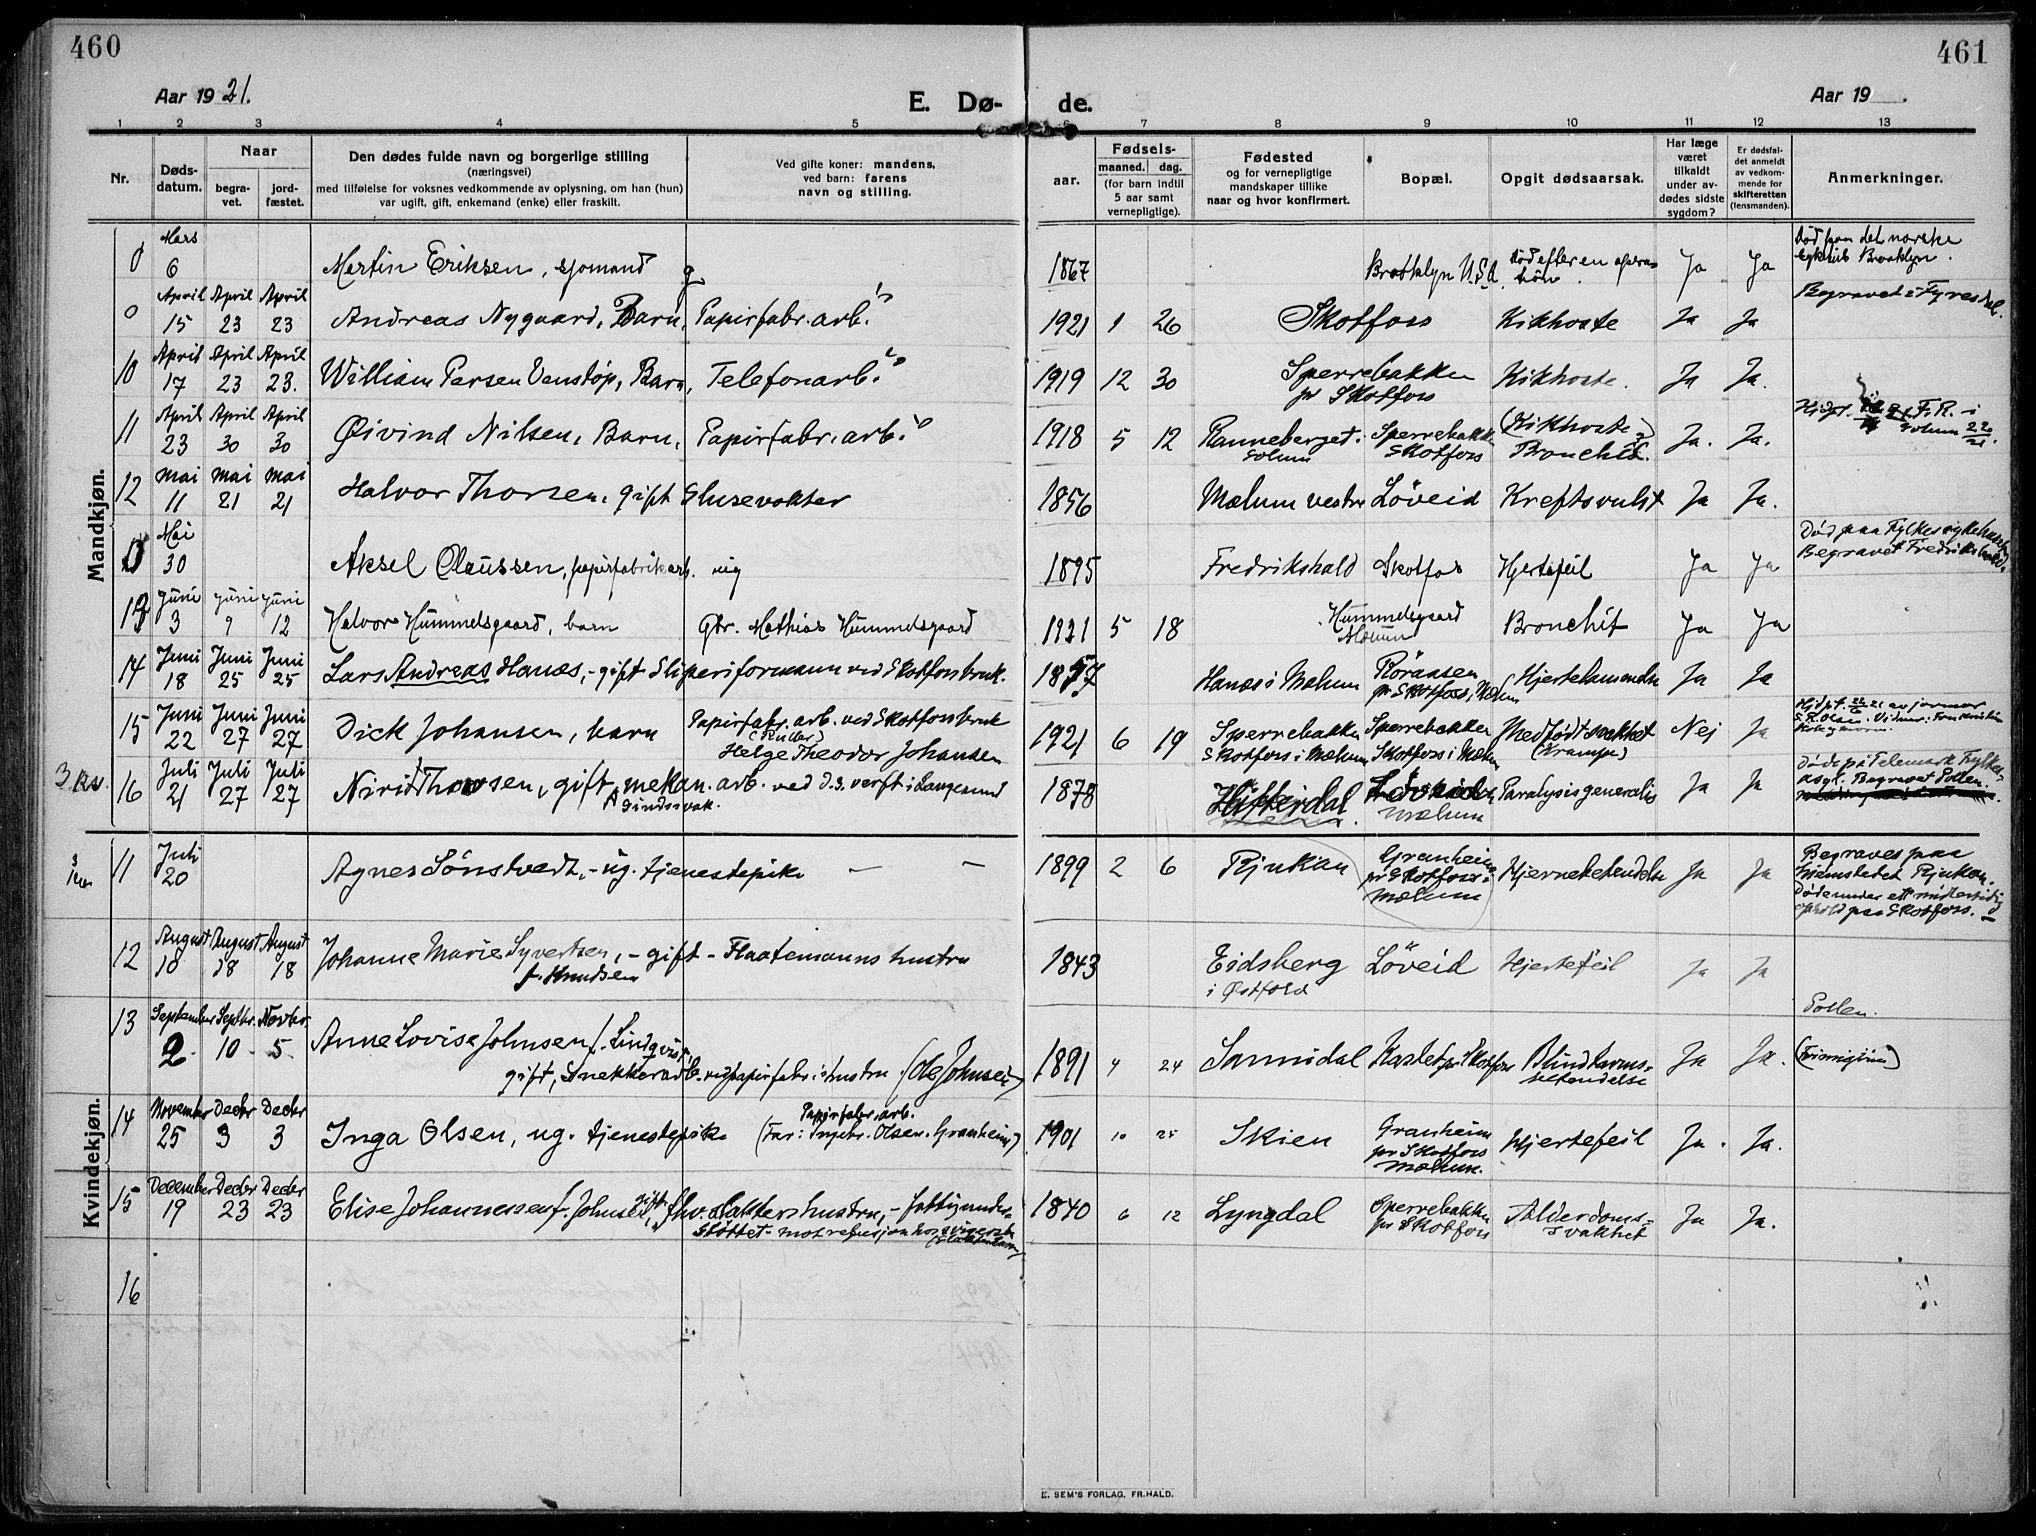 460
461
Aar 1921.
E. Dø-
de.
Aar 19 .
1 2 3 4 5 6 7 8 9 10 11 12 13
Nr.
Døds-
datum.
Naar
begra-
vet.
jord-
fæstet.
Den dødes fulde navn og borgerlige stilling
(næringsvei)
med tilføielse for voksnes vedkommende av oplysning, om han (hun)
var ugift, gift, enkemand (enke) eller fraskilt.
Ved gifte koner: mandens,
ved barn: farens
navn og stilling.
aar.
Fødsels-
maaned. dag.
(for barn indtil
5 aar samt
vernepligtige).
Fødested
og for vernepligtige
mandskaper tillike
naar og hvor konfirmert.
Bopæl.
Opgit dødsaarsak.
Har læge
været
tilkaldt
under av-
dødes sidste
sygdom?
Er dødsfal-
det anmeldt
av vedkom-
mende for
skifteretten
(lensmanden).
Anmerkninger.
Mandkjøn.
0 Mars 6 Martin Eriksen, sjomand g 1867 Brooklyn U.S.A. Død efter en opera-
tion. Ja Ja Død paa det norske
sykehus Brooklyn.
0 April 15 April 23 April 23 Andreas Nygaard, Barn, Papirfabr. arb. 1921 1 26 Skotfoss Kikhoste Ja Ja Begravet i Fyresdal.
10 April 17 April 23 April 23. William Persen Venstøp, Barn, Telefonarb. 1919 12 30 Sperrebakken
pr Skotfoss Kikhoste. Ja Ja.
11 April 23 April 30 April 30 Øivind Nilsen, Barn, Papirfabr. arb. 1918 5 12 Ranneberget.
Solum Sperrebakk.
Skotfoss (Kikhoste)
Bronchit. Ja. Ja. F.R. i
Solum
12 Mai 11 Mai 21 Mai 21 Halvor Thorsen, gift Slusevokter 1856 Mælum vestre Löveid Kreftsvulst Ja Ja.
0 Mai 30 Aksel Claussen, papirfabrikarb. ug 1895 Fredrikshald Skotfos Hjertefeil Ja Ja Død paa Fylkessykehuset
Begravet Fredrikshald.
13 Juni 3 Juni 9 Juni 12 Halvor Hummelsgaard, barn Gbr. Mathias Hummelsgaard 1921 5 18 Hummelsgaard
Mælum Bronchit Ja Ja
14 Juni 18 Juni 25 Juni 25 Lars Andreas Hanæs, - gift Sliperiformann ved Skotfossbruk. 1857 Hanæs i Mælum Röraasen
pr Skotfoss i Mælum Hjertelammelse Ja Ja
15 Juni 22 Juni 27 Juni 27 Dick Johansen, barn Papirfabr. arb. ved Skotfossbruk
(Ruller)
Helge Theodor Johansen 1921 6 19 Sperrebakken
Skotfoss i Mælum Sperrebakken
Skotfoss i Mælum Medfödt svakhet
(Krampe) Nej Ja Hjdpt. av jormor
3 Kv.
16 Juli 21 Juli 27 Juli 27 Nirid Thorsen, gift, mekan. arb. ved D.S. verft i Langesund
Sindssvak. 1878 Hitterdal Löveid
Mælum Paralysis generalis Ja Ja Døde på Telemark Fylkes-
asyl. Begravet Pollen.
Kvindekjøn.
11 Juli 20 Agnes Sönstvedt, - ug. tjenestepike — — 1899 2 6 Rjukan Granheim
pr Skotfoss i
Mælum Hjernebetendelse Ja Ja Begraves paa
hjemstedet Rjukan.
Døde under ett midlertidig
ophold paa Skotfoss.
12 August 10 August 18 August 18 Johanne Marie Syvertsen, - gift - Flaatemanns hustru
f. Knudsen 1843 Eidsberg
i Østfold Löveid Hjertefeil Ja Ja
13 September 2. Septbr. 10 Novbr. 5. Anne Lovise Johnsen f. Lindqvist,
gift, Snekkerarb. ved papirfabr.s hustru (Ole Johnsen) 1891 4 24 Sannidal Kastet pr. Skotfoss Blindtarms-
betendelse Ja Ja. Pollen.
14 November 25 Decbr 3 Decbr 3 Inga Olsen, ug. tjenestepike Papirfabr. arb.
(Far: Ingebr. Olsen. Granheim) 1901 10 25 Skien Granheim
pr Skotfoss
Mælum. Hjertefeil Ja. Ja.
15 December 19 Decbr 23 Decbr 23 Elise Johannessen f. Johnsen, gift, fhv. slakters hustru, - fattigunder-
støttet - mot refusjon hos 1840 6 12 Lyngdal Sperrebakken
pr Skotfoss Alderdoms-
svakhet Ja Ja.
16
E. SEM'S FORLAG, FR.HALD.